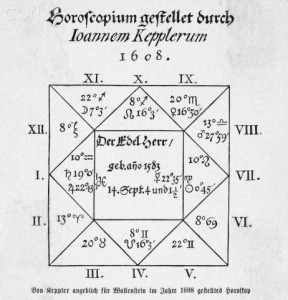 Horoscopium gestellet durch
Ioannem Kepplerum
1608.
XI. X. IX.
22°♐ 8°♐ 20°♏
☽7°3' ☊16°3' ♀16°30'
XII. 8♑ 13°♎ VIII.
♂27°59'
Der Edel Herr/
geb. año 1583
☿22°35'
14. Sept. 4 und 1/2.
10°♒ 10°♌
I. ♄19°0' ☉0°45' VII.
♃22°8'
II. 13°♈ 8°69 VI.
20°♉ 8°♊ 22°♊
☋16°3'
III. IV. V.
Von Keppler angeblich für Wallenstein im Jahre 1608 gestelltes Horoskop